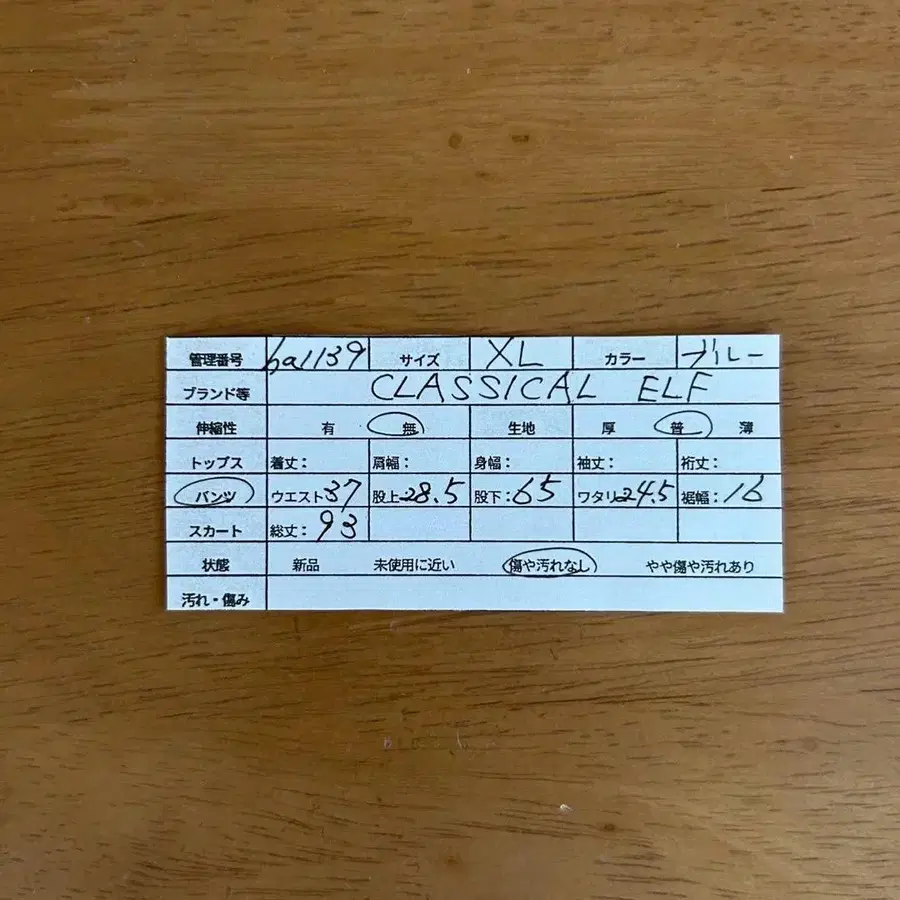 管理番号 ba1139 サイズ XL カラー ブルー
ブランド等 CLASSICAL ELF
伸縮性 有 無 生地 厚 普 薄
トップス 着丈: 肩幅: 身幅: 袖丈: 裄丈:
パンツ ウエスト37 股上28.5 股下:65 ワタリ24.5 裾幅:16
スカート 総丈:93
状態 新品 未使用に近い 傷や汚れなし やや傷や汚れあり
汚れ・傷み